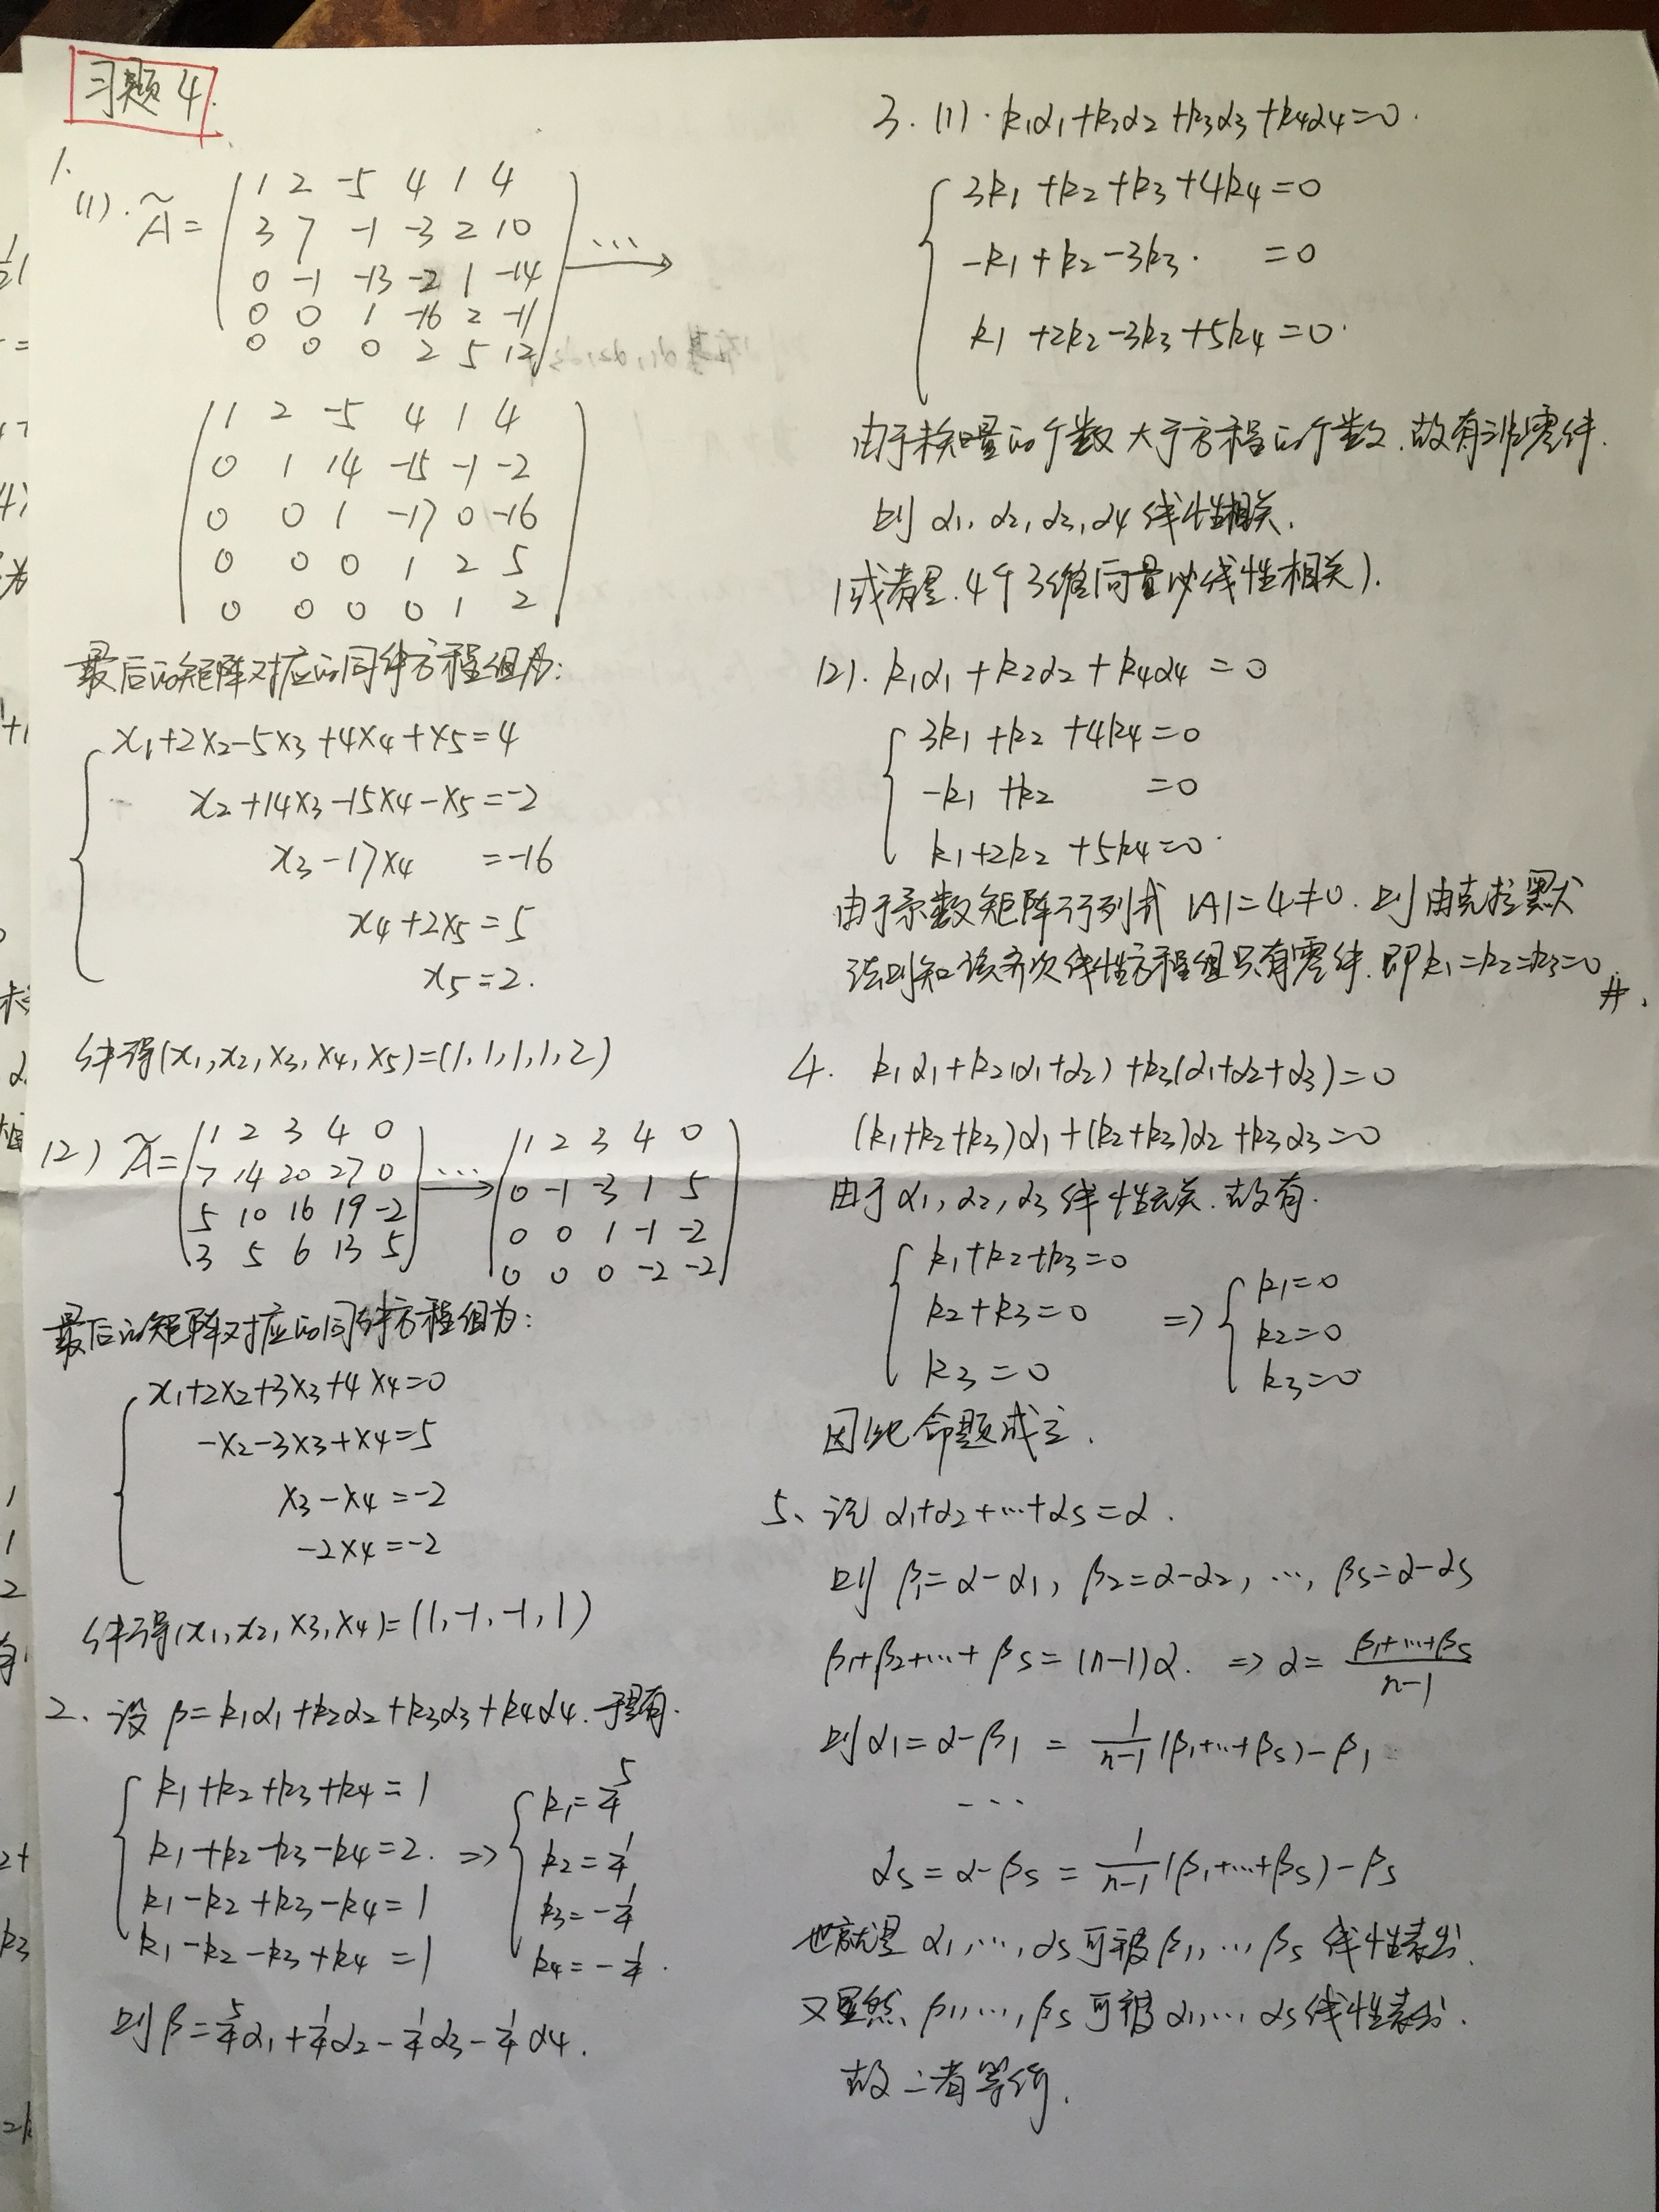 习题 4.
1.
(1). Ã = ( 1 2 -5 4 1 4
3 7 -1 -3 2 10
0 -1 -13 -2 1 -14
0 0 1 -16 2 -11
0 0 0 2 5 12 ) ⋯→
( 1 2 -5 4 1 4
0 1 14 -15 -1 -2
0 0 1 -17 0 -16
0 0 0 1 2 5
0 0 0 0 1 2 )
最后的矩阵对应的同解方程组为:
x₁+2x₂-5x₃+4x₄+x₅=4
x₂+14x₃-15x₄-x₅=-2
x₃-17x₄ =-16
x₄+2x₅=5
x₅=2.
解得(x₁,x₂,x₃,x₄,x₅)=(1,1,1,1,2)
(2) Ã = ( 1 2 3 4 0
7 14 20 27 0
5 10 16 19 -2
3 5 6 13 5 ) ⋯→ ( 1 2 3 4 0
0 -1 -3 1 5
0 0 1 -1 -2
0 0 0 -2 -2 )
最后的矩阵对应的同解方程组为:
x₁+2x₂+3x₃+4x₄=0
-x₂-3x₃+x₄=5
x₃-x₄=-2
-2x₄=-2
解得(x₁,x₂,x₃,x₄)=(1,-1,-1,1)
2、设 β=k₁α₁+k₂α₂+k₃α₃+k₄α₄.于是有.
k₁+k₂+k₃+k₄=1
k₁+k₂-k₃-k₄=2.
k₁-k₂+k₃-k₄=1
k₁-k₂-k₃+k₄=1
⇒ k₁=5/4
k₂=1/4
k₃=-1/4
k₄=-1/4.
则β=5/4α₁+1/4α₂-1/4α₃-1/4α₄.
3. (1). k₁α₁+k₂α₂+k₃α₃+k₄α₄=0.
3k₁+k₂+k₃+4k₄=0
-k₁+k₂-3k₃. =0
k₁+2k₂-3k₃+5k₄=0.
由于未知量的个数大于方程的个数.故有非零解.
则 α₁,α₂,α₃,α₄ 线性相关.
(或者是.4个3维向量必线性相关).
(2). k₁α₁+k₂α₂+k₄α₄=0
3k₁+k₂+4k₄=0
-k₁+k₂ =0
k₁+2k₂+5k₄=0.
由于系数矩阵行列式 |A|=4≠0.则由克拉默
法则知该齐次线性方程组只有零解.即k₁=k₂=k₃=0. #.
4. k₁α₁+k₂(α₁+α₂)+k₃(α₁+α₂+α₃)=0
(k₁+k₂+k₃)α₁+(k₂+k₃)α₂+k₃α₃=0
由于 α₁,α₂,α₃ 线性无关.故有.
k₁+k₂+k₃=0
k₂+k₃=0
k₃=0
⇒ k₁=0
k₂=0
k₃=0
因此命题成立.
5、记 α₁+α₂+⋯+αs=α.
则 β₁=α-α₁, β₂=α-α₂, ⋯, βs=α-αs
β₁+β₂+⋯+βs=(n-1)α. ⇒ α=(β₁+⋯+βs)/(n-1)
则α₁=α-β₁=1/(n-1)(β₁+⋯+βs)-β₁
⋯
αs=α-βs=1/(n-1)(β₁+⋯+βs)-βs
也就是 α₁,⋯,αs可被β₁,⋯βs 线性表出.
又显然、β₁,⋯,βs可被α₁,⋯αs线性表出.
故二者等价.